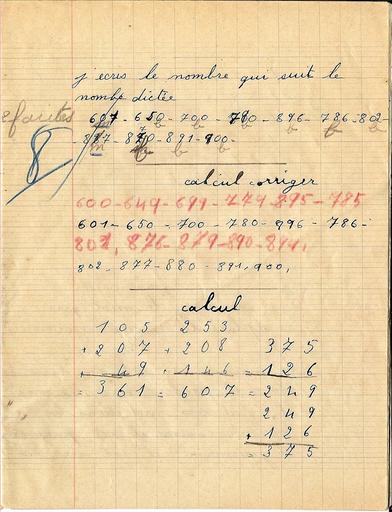 j'ecris le nombre qui suit le
nombre dictée
2 fautes 607 - 650 - 700 - 780 - 896 - 786 - 802 -
8 877 - 880 - 891 - 900 -
calcul corriger
600 - 649 - 699 - 779 - 895 - 785
601 - 650 - 700 - 780 - 896 - 786 -
801, 876 - 879 - 890 - 899,
802 - 877 - 880 - 891, 900,
calcul
105 253
+ 207 + 208 375
+ 49 + 146 - 126
= 361 = 607 = 249
249
+ 126
= 375